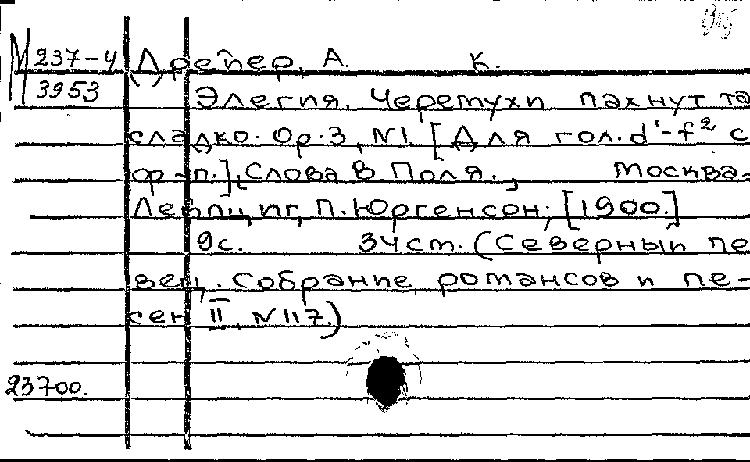 М 237-4 Дрейер, А. К.
3953 Элегия. Черемухи пахнут та
сладко. Ор. 3, N1. [Для гол. d¹-f² с
ф-п.], Слова В. Поля., Москва-
Лейпциг, П. Юргенсон, [1900.]
9с. 34 см. (Северный пе
вец. Собрание романсов и пе-
сен II, N117.)
23700.